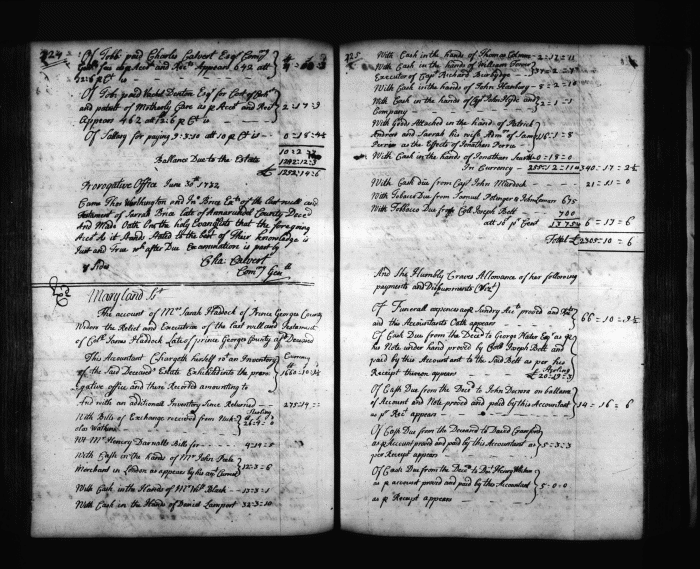 724
Of Tobb: paid Charles Calvert Esqr Comry
Genll fees as p Acct and Rect Appears 642 att
12:6 p Ct is
Of Tobb: paid Vachel Denton Esqr for Cost of
and patent of Motherly Care as p Acct and Rect 2 17 9
Appears 462 att 12:6 p Ct is
Of Sallary for paying 9:3:10 att 10 p Ct is 0 = 18 = 4½
10 = 2
Ballance Due to the Estate 1242 = 12 = 3
£ 1252 = 14 = 6
Prerogative Office June 30th 1732
Came Thos Worthington and Jno Brice Exrs of the Last will and
Testament of Sarrah Brice Late of Annarundel County Deced
And Made Oath On the holy Evangelists that the foregoing
Acct As it Stands Stated to the best of Their Knowledge is
Just and True wch after Due Examination is past by
Cha: Calvert
Comry Genll
Maryland Sst
The account of Mrs Sarah Haddock of Prince George County
Widdow the Relict and Executrix of the Last will and Testament
of Collo James Haddock Late of prince George County afd Deceased
This Accountant Chargeth herself to an Inventory
of the Said Deceased Estate Exhibited into the prero
gative office and there Recorded amounting to
Currency
And with an additional Inventory Since Returned 275 = 14 =
With Bills of Exchange received from Nich
olas Watkins
Sterling
26 = 4 = 0
Wt Mr Henery Darnalls Bill for 4 = 14 = 8
With Cash in the hands of Mr John Peele
Merchant in London as appears by his acct Currt 12 = 3 = 6
With Cash in the Hands of Mr Wm Black 13 = 3 = 1
With Cash in the Hands of Daniel Lamport 32 = 3 = 10
725
With Cash in the hands of Thomas Colmore 2 = 12 = 11
With Cash in the hands of William Tower
Executor of Capt Richard Bowbridge
With Cash in the hands of John Hanbury 5 = 2 = 10
With Cash in the hands of Capt John Hyde and
Company 2 = 1 = 1
With Goods Attached in the hands of Patrick
Andrew and Sarrah his wife Admx of Sam
Perrie as the Effects of Jonathan Perrie
With Cash in the hands of Jonathan 0 = 18 = 0
In Currency 255 = 12 = 11 340 = 17 = 2½
With Cash due from Capt John Murdock 21 = 11 = 0
With Tobaco Due from Samuel Pelmger & John Lamar 675
With Tobbaco Due from Coll Joseph Belt 700
att 10 p Cent 1375 6 = 17 = 6
Total £ 2309 = 10 = 6
And She Humbly Craves Allowance of her following
payments and Disbursments (Vizt)
Of Funerall expences as p Sundry Accts proved and
and this Accountants Oath appears 66 = 10 = 9½
Of Cash Due from the Decd to George Hater Esqr as p
his Note under hand proved by Coll Joseph Belt and
paid by this Accountant to the Said Belt as per his
Receipt thereon appears
Sterling
£ 20 = 19 = 3
Of Cash Due from the Decd to John Ducrow on ballance
of Account and Note proved and paid by this Accountant 14 = 16 = 6
as pr Rect appears
Of Cash Due from the Deceased to David Crawford
as p Account proved and paid by this Accountant as 5 = 3 = 3
per Receipt appears
Of Cash Due from the Decd to
as p account proved and paid by this Accountant 5 = 0 = 0
as p Receipt appears